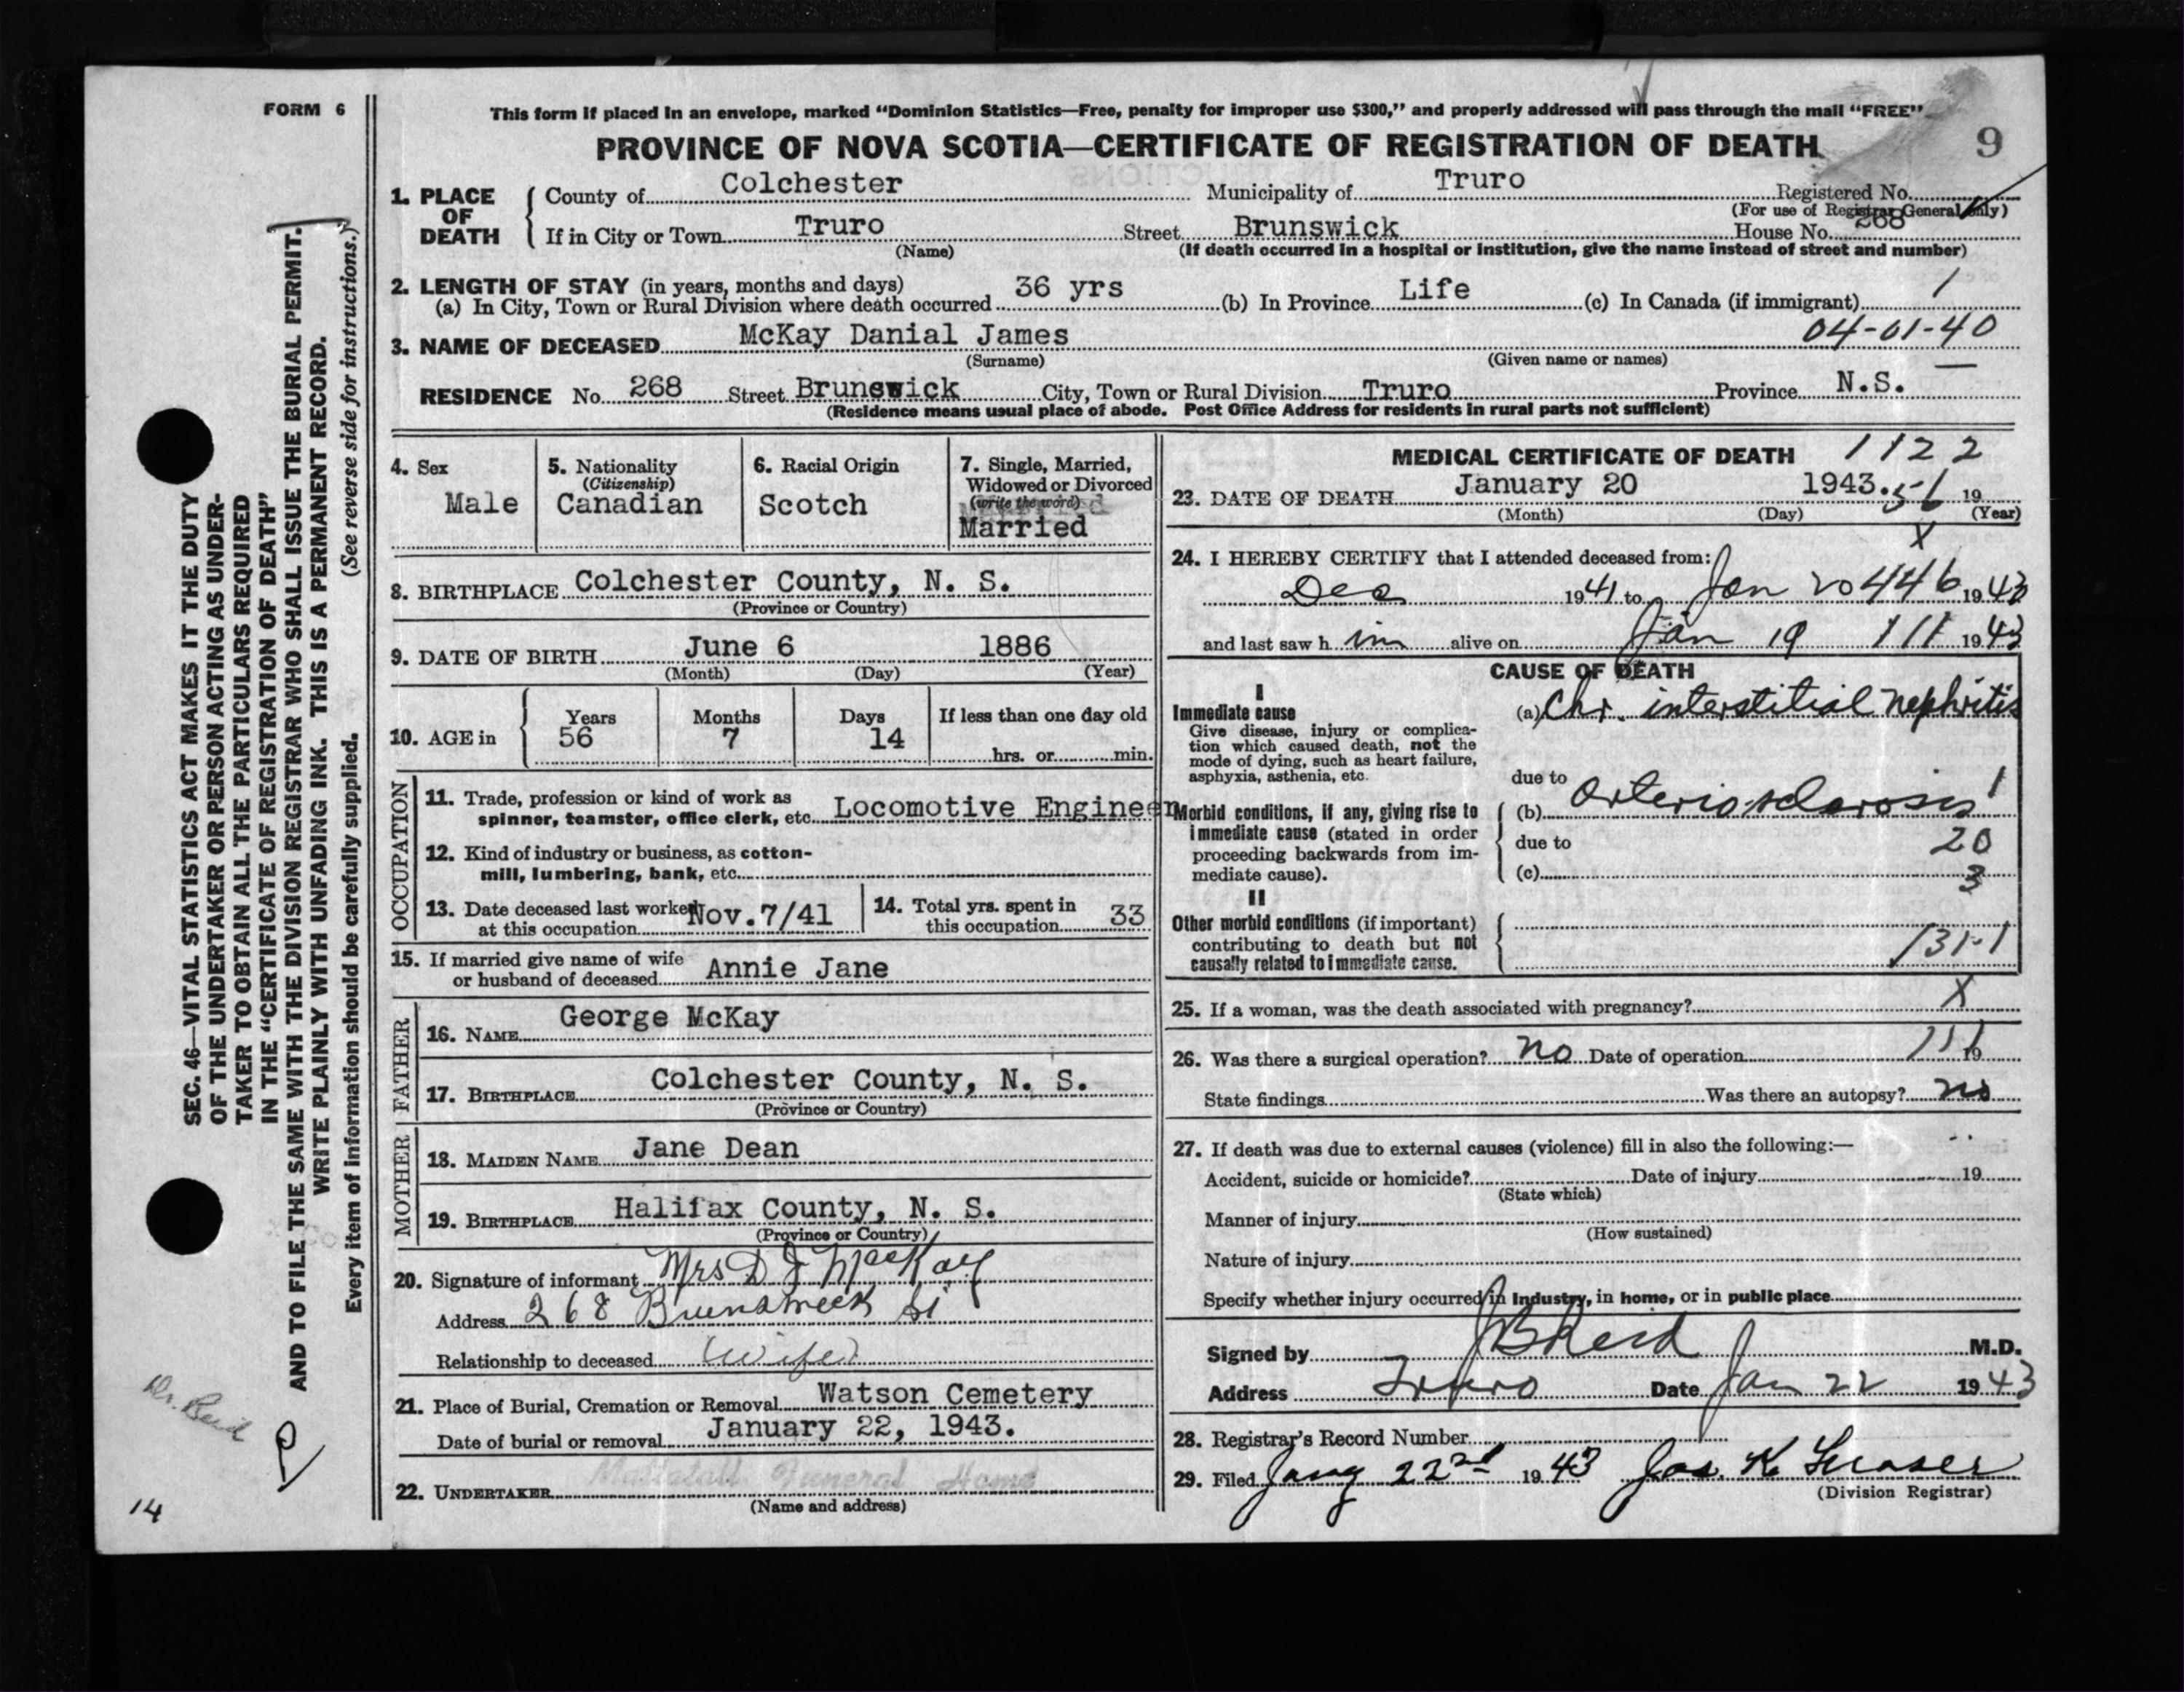 FORM 6
This form if placed in an envelope, marked “Dominion Statistics—Free, penalty for improper use $300,” and properly addressed will pass through the mail “FREE”
PROVINCE OF NOVA SCOTIA—CERTIFICATE OF REGISTRATION OF DEATH 9
1. PLACE OF DEATH
County of Colchester Municipality of Truro Registered No.
(For use of Registrar General only)
If in City or Town Truro Street Brunswick House No. 268
(Name) (If death occurred in a hospital or institution, give the name instead of street and number)
2. LENGTH OF STAY (in years, months and days)
(a) In City, Town or Rural Division where death occurred 36 yrs (b) In Province Life (c) In Canada (if immigrant) 1
04-01-40
3. NAME OF DECEASED McKay Danial James
(Surname) (Given name or names)
RESIDENCE No. 268 Street Brunswick City, Town or Rural Division Truro Province N.S.
(Residence means usual place of abode. Post Office Address for residents in rural parts not sufficient)
4. Sex
Male
5. Nationality
(Citizenship)
Canadian
6. Racial Origin
Scotch
7. Single, Married,
Widowed or Divorced
(write the word)
Married
8. BIRTHPLACE Colchester County, N. S.
(Province or Country)
9. DATE OF BIRTH June 6 1886
(Month) (Day) (Year)
10. AGE in
Years Months Days If less than one day old
56 7 14
hrs. or min.
OCCUPATION
11. Trade, profession or kind of work as
spinner, teamster, office clerk, etc. Locomotive Engineer
12. Kind of industry or business, as cotton-
mill, lumbering, bank, etc.
13. Date deceased last worked
at this occupation Nov.7/41
14. Total yrs. spent in
this occupation 33
15. If married give name of wife
or husband of deceased Annie Jane
FATHER
16. NAME George McKay
17. BIRTHPLACE Colchester County, N. S.
(Province or Country)
MOTHER
18. MAIDEN NAME Jane Dean
19. BIRTHPLACE Halifax County, N. S.
(Province or Country)
20. Signature of informant Mrs D J MacKay
Address 268 Brunsweek St
Relationship to deceased Wife
21. Place of Burial, Cremation or Removal Watson Cemetery
Date of burial or removal January 22, 1943.
22. UNDERTAKER Mattatall Funeral Home
(Name and address)
MEDICAL CERTIFICATE OF DEATH 1122
23. DATE OF DEATH January 20 1943. 19
(Month) (Day) (Year)
X
24. I HEREBY CERTIFY that I attended deceased from:
Dec 1941 to Jan 20 446 1943
and last saw him alive on Jan 19 111 1943
CAUSE OF DEATH
I
Immediate cause
Give disease, injury or complica-
tion which caused death, not the
mode of dying, such as heart failure,
asphyxia, asthenia, etc.
(a) Chr. interstitial nephritis
due to 1
Morbid conditions, if any, giving rise to
immediate cause (stated in order
proceeding backwards from im-
mediate cause).
(b) Arteriosclerosis
due to 20
(c) 3
II
Other morbid conditions (if important)
contributing to death but not
causally related to immediate cause.
131-1
25. If a woman, was the death associated with pregnancy? X
26. Was there a surgical operation? no Date of operation 111 19
State findings Was there an autopsy? no
27. If death was due to external causes (violence) fill in also the following:—
Accident, suicide or homicide? Date of injury 19
(State which)
Manner of injury
(How sustained)
Nature of injury
Specify whether injury occurred in Industry, in home, or in public place
Signed by JB Reid M.D.
Address Truro Date Jan 22 1943
28. Registrar's Record Number
29. Filed Jany 22nd 1943 Jas. K Fraser
(Division Registrar)
SEC. 46—VITAL STATISTICS ACT MAKES IT THE DUTY
OF THE UNDERTAKER OR PERSON ACTING AS UNDER-
TAKER TO OBTAIN ALL THE PARTICULARS REQUIRED
IN THE “CERTIFICATE OF REGISTRATION OF DEATH”
AND TO FILE THE SAME WITH THE DIVISION REGISTRAR WHO SHALL ISSUE THE BURIAL PERMIT.
WRITE PLAINLY WITH UNFADING INK. THIS IS A PERMANENT RECORD.
Every item of information should be carefully supplied. (See reverse side for instructions.)
Dr. Reid
P
14